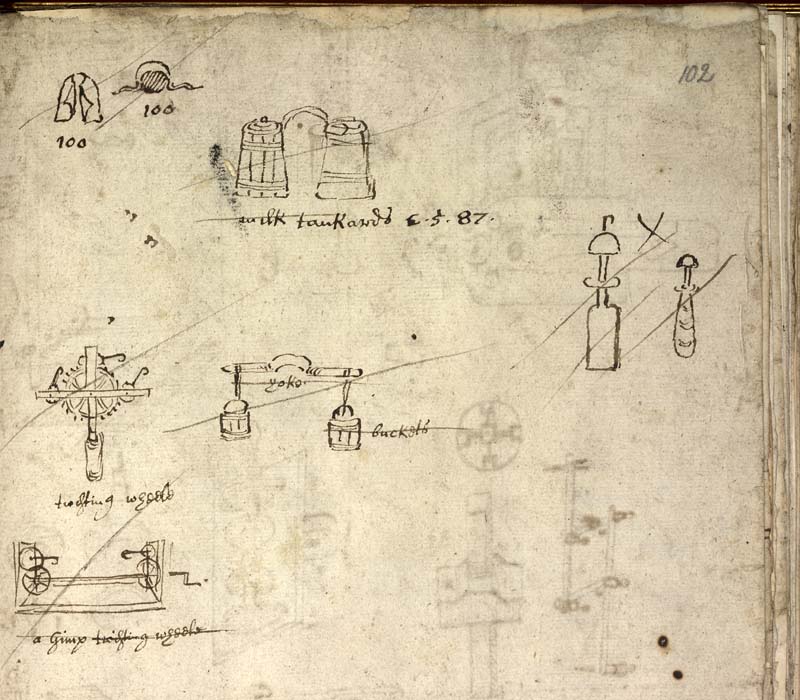 102
100
100
milk tankards 6.5.87.
yoke
buckets
twisting wheele
a Gimp twisting wheele